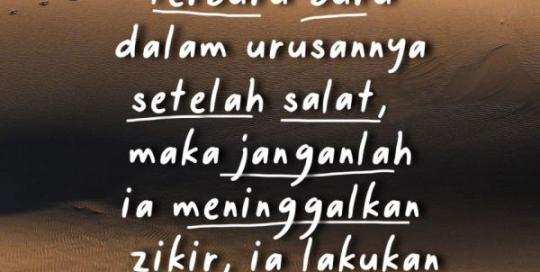 terburu buru
dalam urusannya
setelah salat,
maka janganlah
ia meninggalkan
zikir, ia lakukan